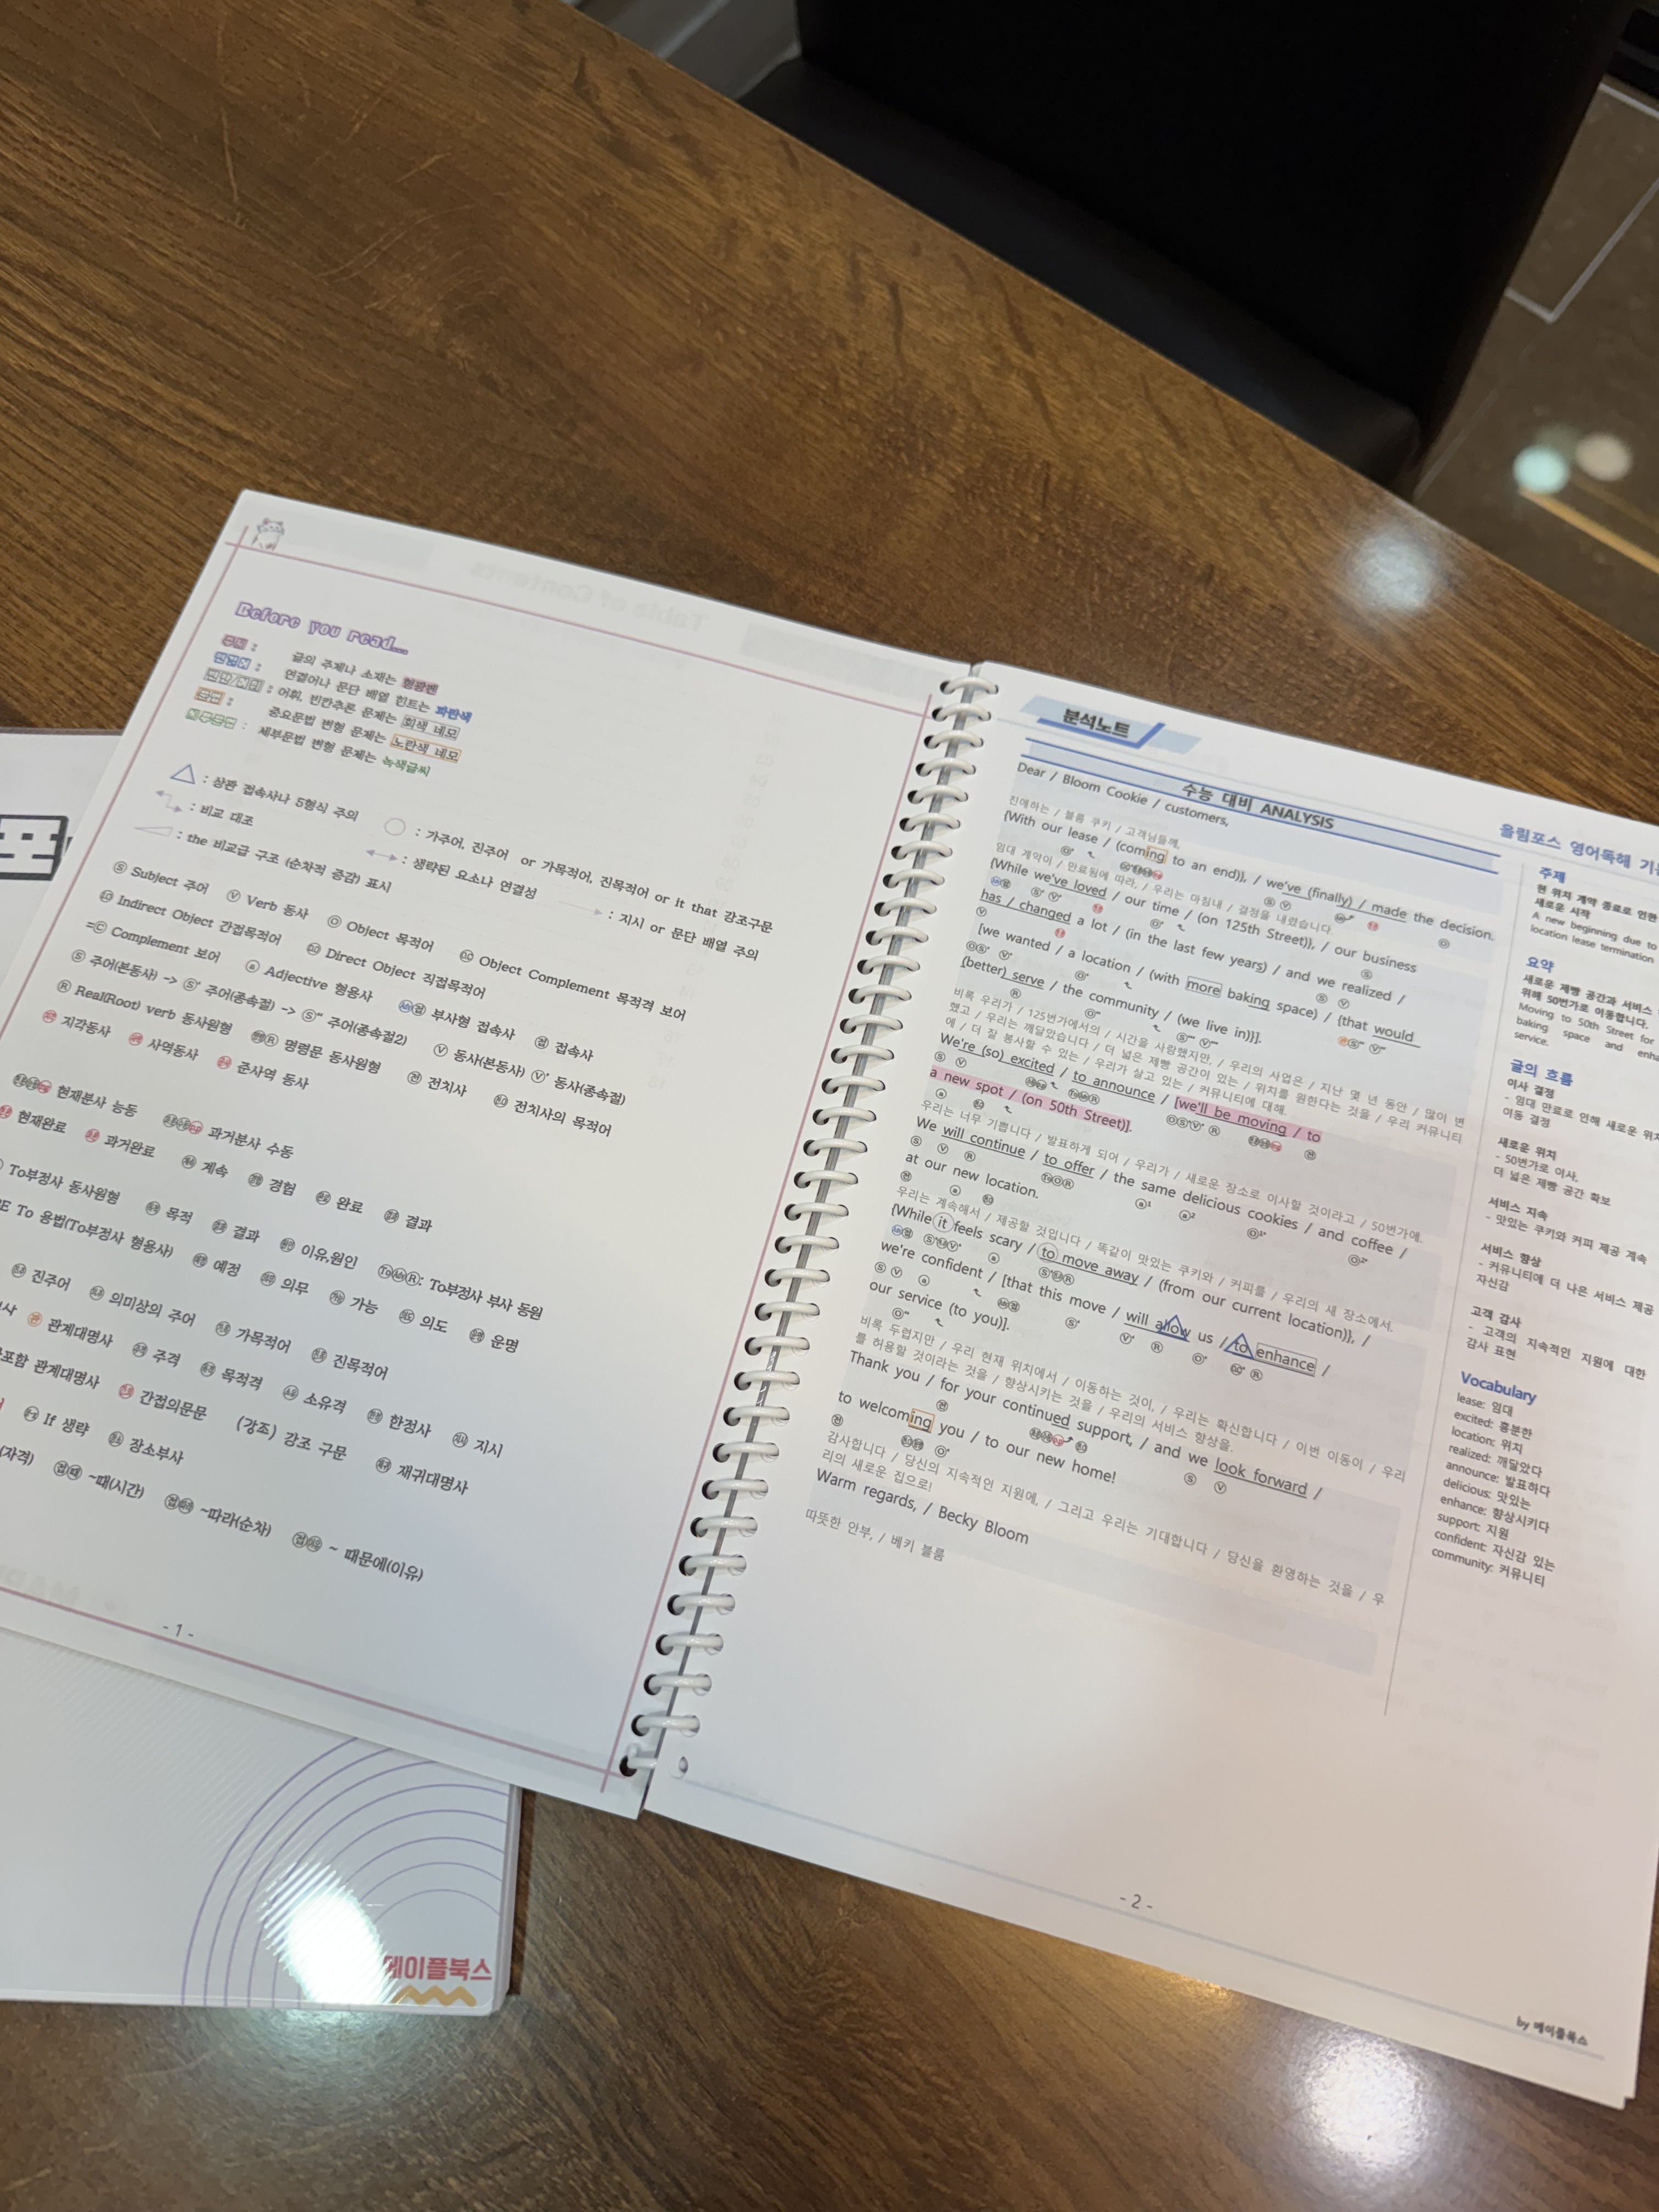 Before you read...
주제 : 글의 주제나 소재는 형광펜
연결어 : 연결어나 문단 배열 힌트는 파란색
: 어휘, 빈칸추론 문제는 회색 네모
: 중요문법 변형 문제는 노란색 네모
: 세부문법 변형 문제는 녹색글씨
: 상관 접속사나 5형식 주의
: 가주어, 진주어 or 가목적어, 진목적어 or it that 강조구문
: 비교 대조
: 생략된 요소나 연결성
: 지시 or 문단 배열 주의
: the 비교급 구조 (순차적 증감) 표시
Ⓢ Subject 주어 Ⓥ Verb 동사 Ⓞ Object 목적어 Object Complement 목적격 보어
Indirect Object 간접목적어 Direct Object 직접목적어
=Ⓒ Complement 보어 ⓐ Adjective 형용사 부사형 접속사 접속사
Ⓢ 주어(본동사) -> Ⓢ' 주어(종속절) -> Ⓢ'' 주어(종속절2) Ⓥ 동사(본동사) Ⓥ' 동사(종속절)
Ⓡ Real(Root) verb 동사원형 명령문 동사원형 전치사 전치사의 목적어
지각동사 사역동사 준사역 동사
현재분사 능동 과거분사 수동
현재완료 과거완료 계속 경험 완료 결과
To부정사 동사원형 목적 결과 이유,원인 : To부정사 부사 동원
E To 용법(To부정사 형용사) 예정 의무 가능 의도 운명
진주어 의미상의 주어 가목적어 진목적어
관계대명사 주격 목적격 소유격 한정사 지시
포함 관계대명사 간접의문문 (강조) 강조 구문 재귀대명사
If 생략 장소부사
(자격) ~때(시간) ~따라(순차) ~ 때문에(이유)
- 1 -
메이플북스
분석노트
수능 대비 ANALYSIS
올림포스 영어독해
Dear / Bloom Cookie / customers,
친애하는 / 블룸 쿠키 / 고객님들께,
(With our lease / (coming to an end)), / we've (finally) / made the decision.
임대 계약이 / 만료됨에 따라, / 우리는 마침내 / 결정을 내렸습니다.
(While we've loved / our time / (on 125th Street)), / our business
has / changed a lot / (in the last few years) / and we realized /
[we wanted / a location / (with more baking space) / (that would
(better) serve / the community / (we live in))].
비록 우리가 / 125번가에서의 / 시간을 사랑했지만, / 우리의 사업은 / 지난 몇 년 동안 / 많이 변
했고 / 우리는 깨달았습니다 / 더 넓은 제빵 공간이 있는 / 위치를 원한다는 것을 / 우리 커뮤니티
에 / 더 잘 봉사할 수 있는 / 우리가 살고 있는 / 커뮤니티에 대해.
We're (so) excited / to announce / [we'll be moving / to
a new spot / (on 50th Street)].
우리는 너무 기쁩니다 / 발표하게 되어 / 우리가 / 새로운 장소로 이사할 것이라고 / 50번가에.
We will continue / to offer / the same delicious cookies / and coffee /
at our new location.
우리는 계속해서 / 제공할 것입니다 / 똑같이 맛있는 쿠키와 / 커피를 / 우리의 새 장소에서.
(While it feels scary / to move away / (from our current location)), /
we're confident / [that this move / will allow us / to enhance /
our service (to you)].
비록 두렵지만 / 우리 현재 위치에서 / 이동하는 것이, / 우리는 확신합니다 / 이번 이동이 / 우리
를 허용할 것이라는 것을 / 향상시키는 것을 / 우리의 서비스 향상을.
Thank you / for your continued support, / and we look forward /
to welcoming you / to our new home!
감사합니다 / 당신의 지속적인 지원에, / 그리고 우리는 기대합니다 / 당신을 환영하는 것을 / 우
리의 새로운 집으로!
Warm regards, / Becky Bloom
따뜻한 안부, / 베키 블룸
주제
현 위치 계약 종료로 인한
새로운 시작
A new beginning due to
location lease termination
요약
새로운 제빵 공간과 서비스
위해 50번가로 이동합니다.
Moving to 50th Street for
baking space and
service.
글의 흐름
이사 결정
- 임대 만료로 인해 새로운
이동 결정
새로운 위치
- 50번가로 이사.
더 넓은 제빵 공간 확보
서비스 지속
- 맛있는 쿠키와 커피 제공 계속
서비스 향상
- 커뮤니티에 더 나은 서비스 제공
자신감
고객 감사
- 고객의 지속적인 지원에 대한
감사 표현
Vocabulary
lease: 임대
excited: 흥분한
location: 위치
realized: 깨달았다
announce: 발표하다
delicious: 맛있는
enhance: 향상시키다
support: 지원
confident: 자신감 있는
community: 커뮤니티
- 2 -
by 메이플북스